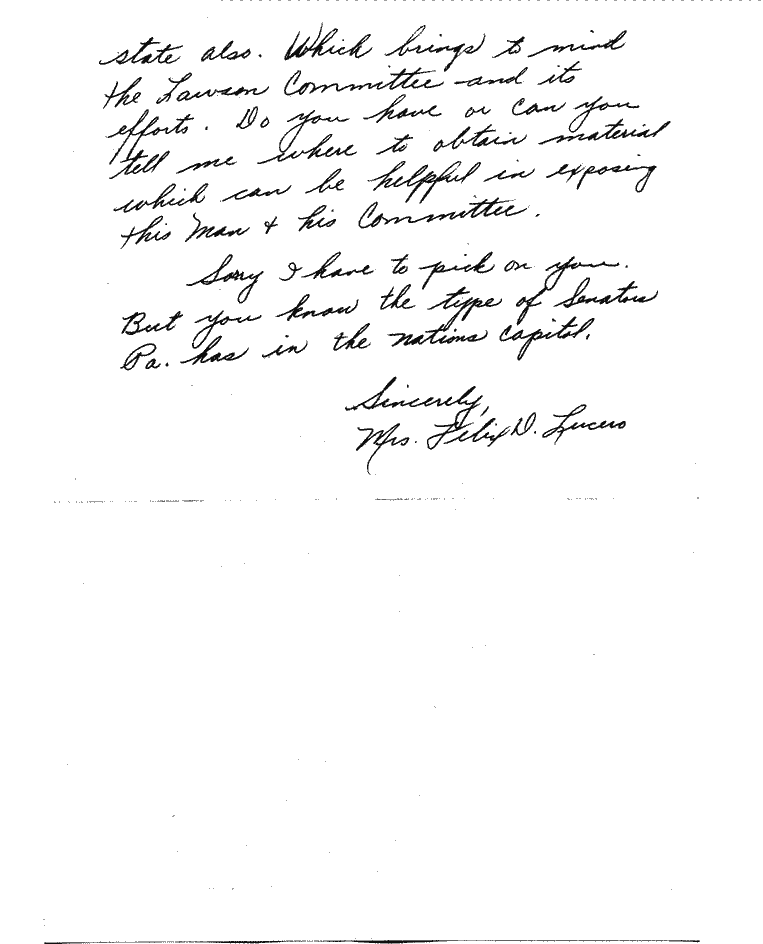 state also. Which brings to mind
the Lawson Committee and its
efforts. Do you have or can you
tell me where to obtain material
which can be helpful in exposing
this Man + his Committee.
Sorry I have to pick on you.
But you know the type of Senators
Pa. has in the nations capitol.
Sincerely,
Mrs. Felix D. Lucero